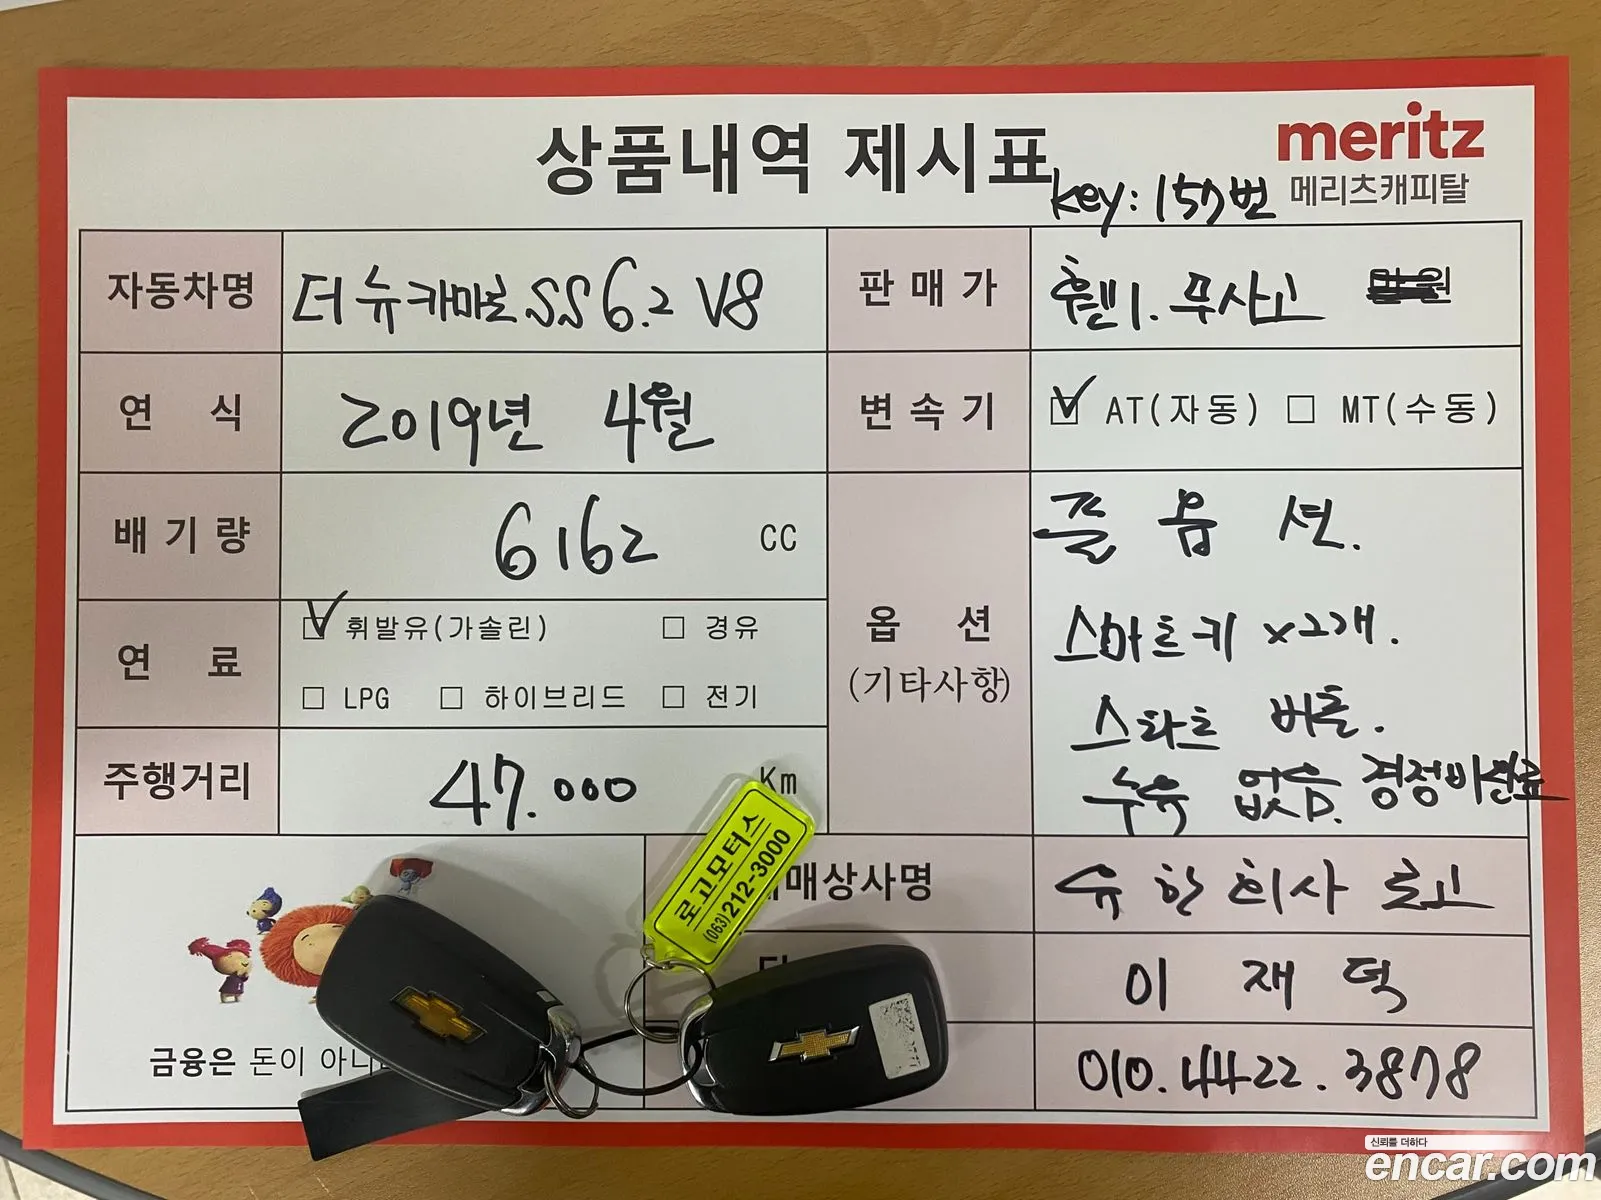 상품내역 제시표
meritz
메리츠캐피탈
key: 157번
자동차명
더뉴카마로 SS 6.2 V8
판매가
휀1. 무사고
원
연 식
2019년 4월
변속기
AT(자동) MT(수동)
배기량
6162 CC
옵 션
(기타사항)
풀 옵 션.
스마트키 x2개.
스타트 버튼.
누유 없음. 경정비완료
연 료
휘발유(가솔린) 경유
LPG 하이브리드 전기
주행거리
47.000 Km
매상사명
유한회사 로고
이 재 덕
010.4422.3878
로고모터스
(063)212-3000
금융은 돈이 아니
신뢰를 더하다
encar.com